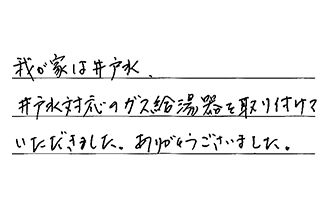 我が家は井戸水、
井戸水対応のガス給湯器を取り付けて
いただきました。ありがとうございました。